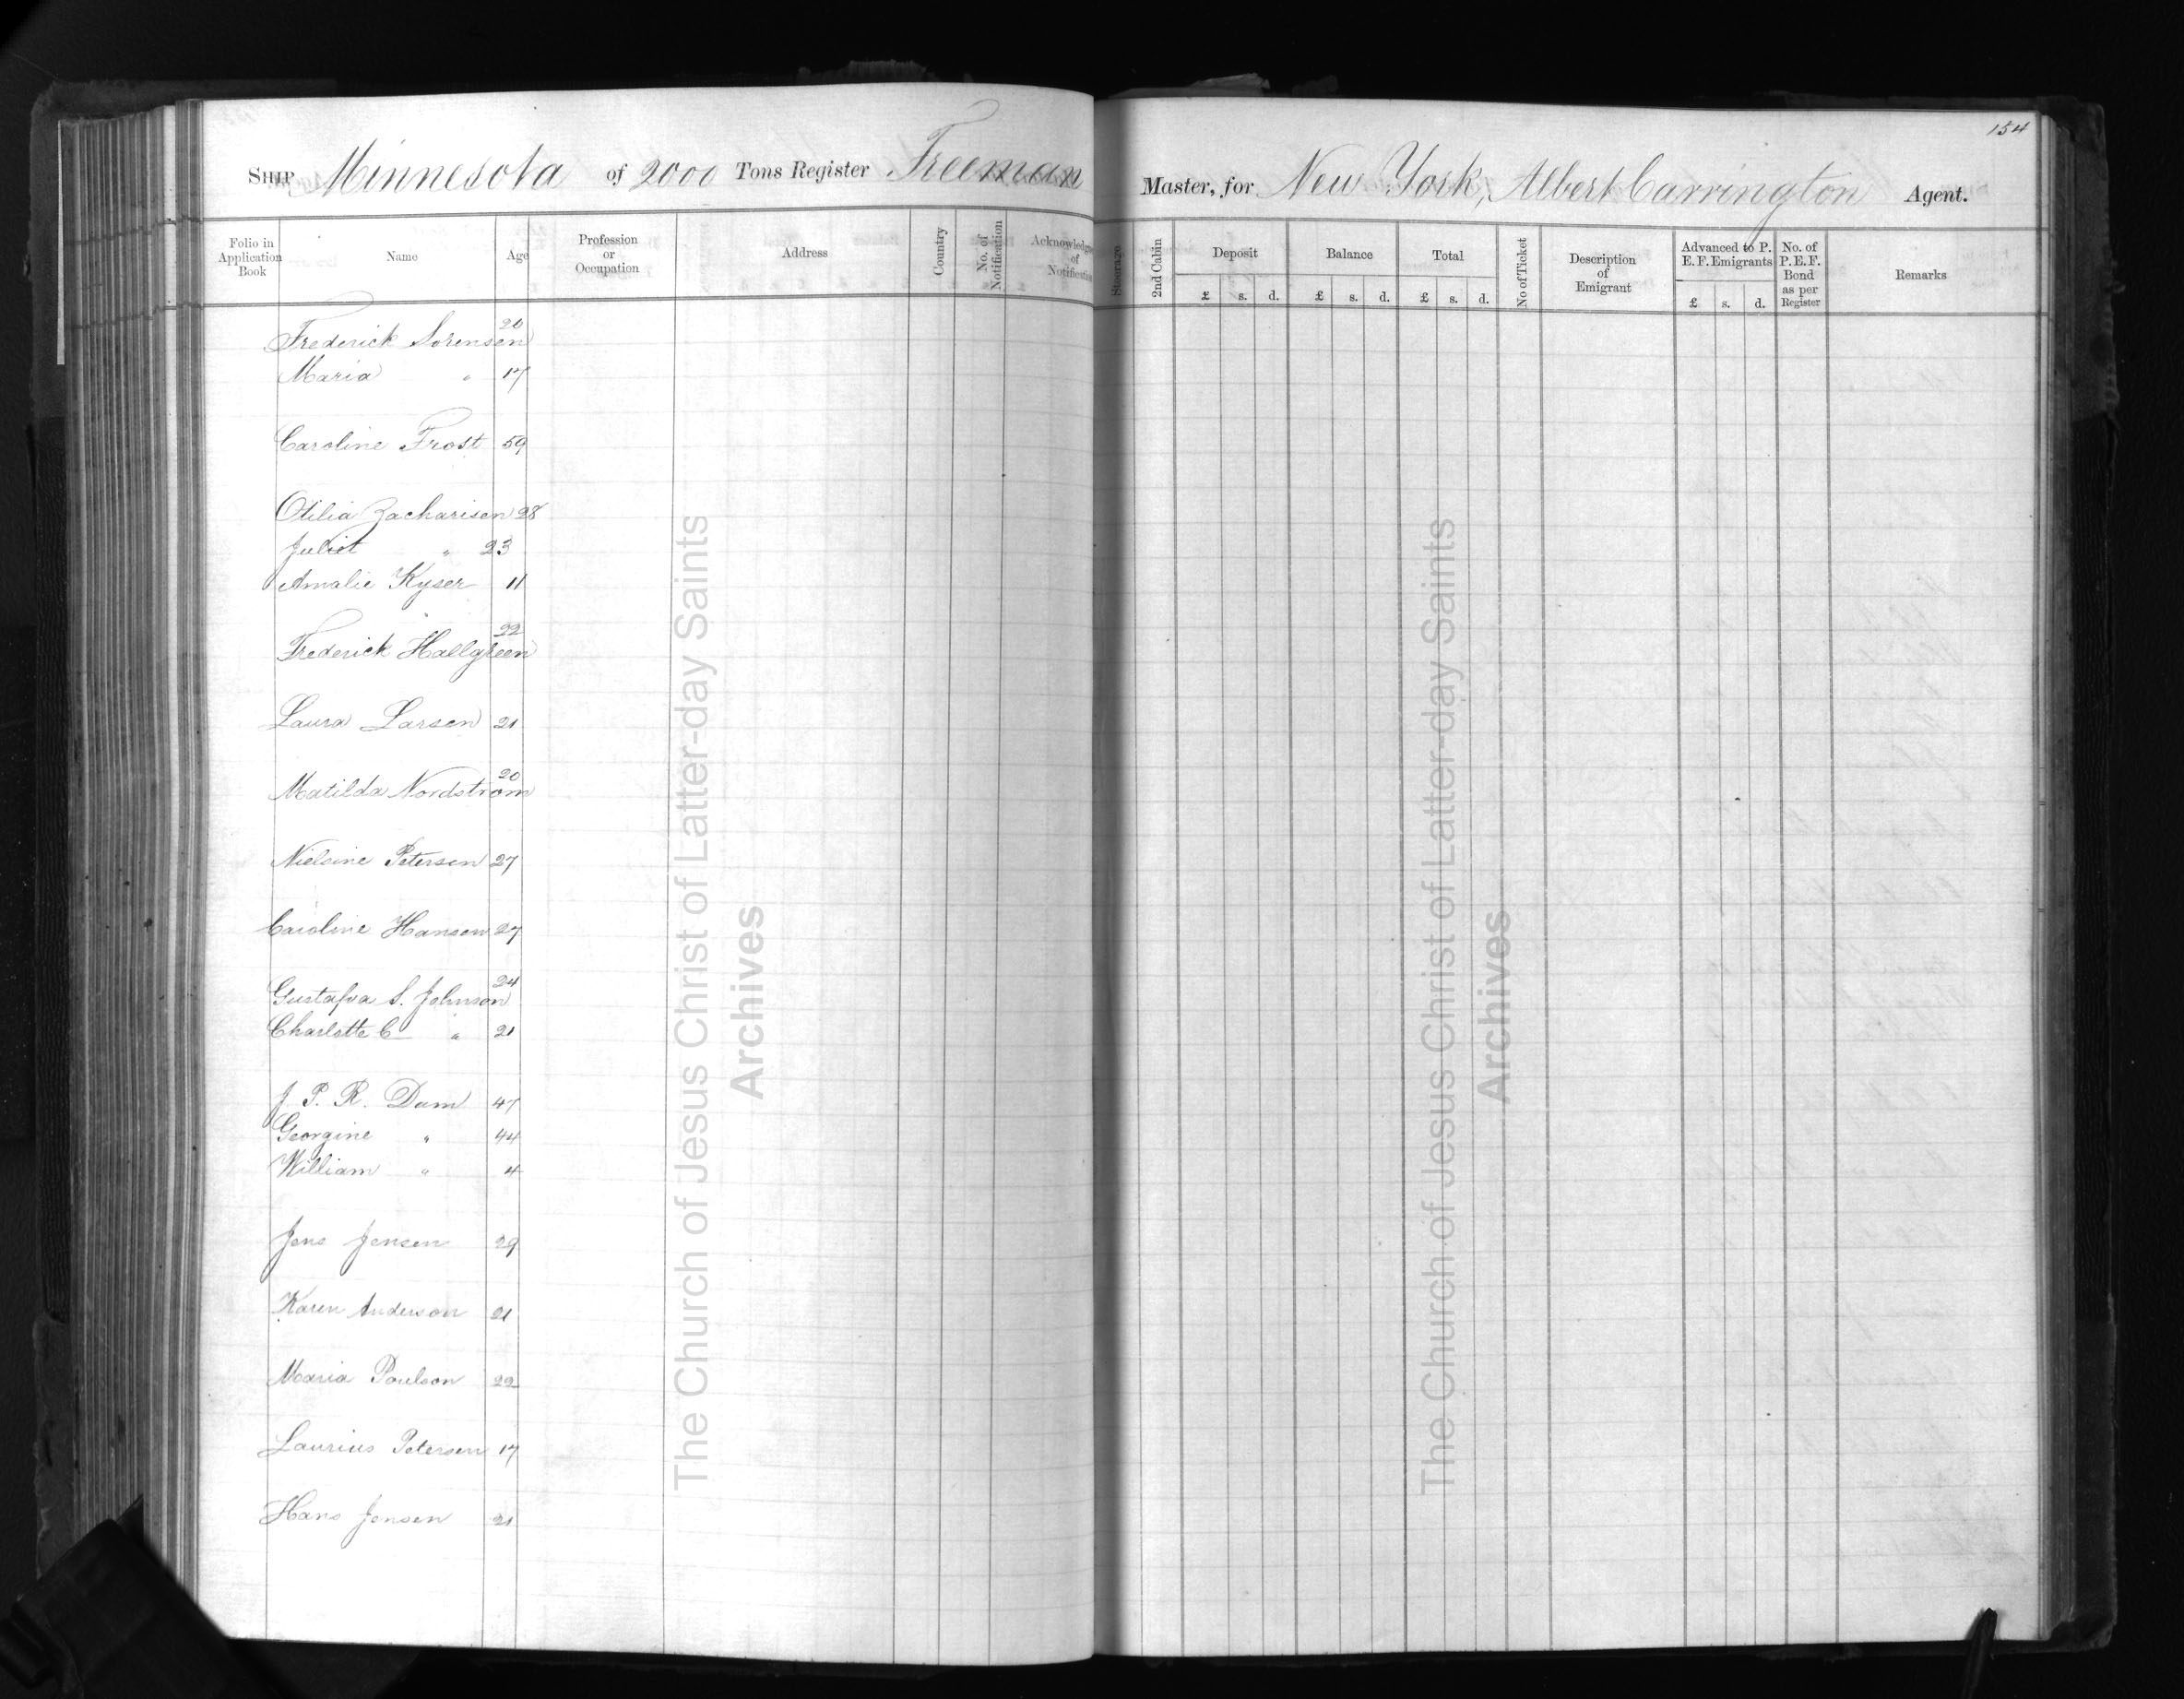 154
Ship Minnesota of 2000 Tons Register Freeman Master, for New York, Albert Carrington Agent.
Folio in Application Book
Name
Age
Profession or Occupation
Address
Country
No. of Notification
Acknowledge of Notification
Steerage
2nd Cabin
Deposit £ s. d.
Balance £ s. d.
Total £ s. d.
No of Ticket
Description of Emigrant
Advanced to P. E. F. Emigrants £ s. d.
No. of P. E. F. Bond as per Register
Remarks
Frederick Sorensen 20
Maria " 17
Caroline Frost 59
Otilia Zacharisen 28
Juliet " 23
Amalie Kyser 11
Frederick Hallgreen 22
Laura Larsen 21
Matilda Nordstrom 20
Nielsine Petersen 27
Caroline Hansen 27
Gustafva S. Johnson 24
Charlotte C " 21
J. P. R. Dam 47
Georgine " 44
William " 4
Jens Jensen 29
Karen Anderson 21
Maria Poulson 22
Laurius Petersen 17
Hans Jensen 21
The Church of Jesus Christ of Latter-day Saints
Archives
The Church of Jesus Christ of Latter-day Saints
Archives